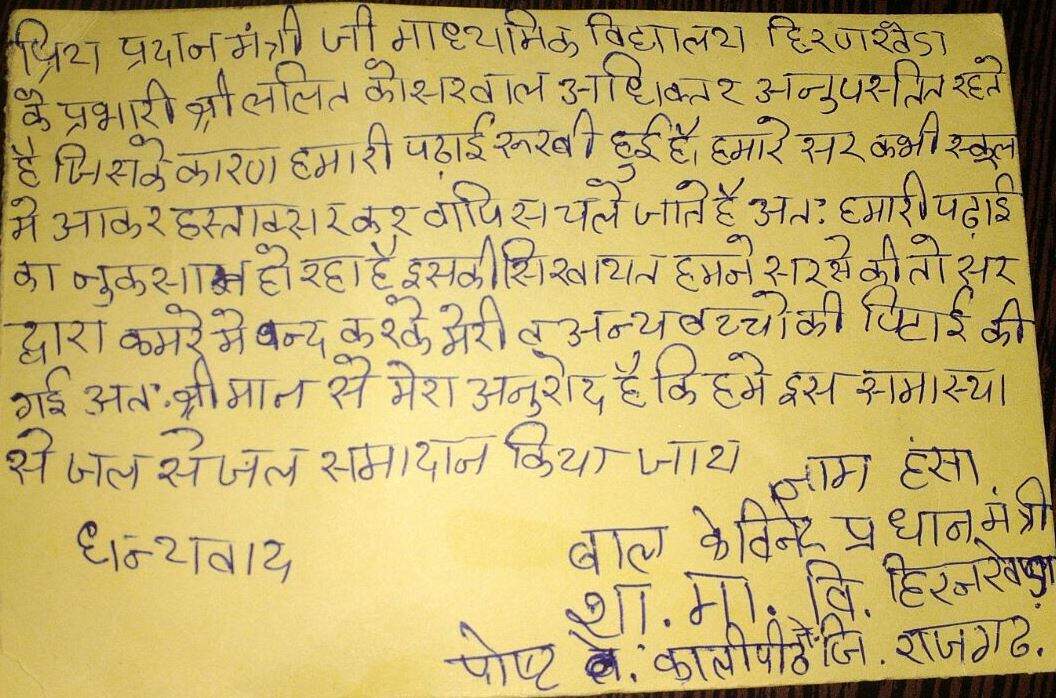 प्रिय प्रदान मंत्री जी माध्यमिक विद्यालय हिरणखेडा
के प्रभारी श्री ललित कोसरवाल अधिक्तर अनुपस्तित रहते
है जिसके कारण हमारी पढ़ाई रूखी हुई है। हमारे सर कभी स्कूल
मे आकर हस्ताक्सर कर वापिस चले जाते है अतः हमारी पढ़ाई
का नुकसान हो रहा है इसकी सिखायत हमने सर से की तो सर
द्वारा कमरे मे बन्द करके मेरी व अन्य बच्चो की पिटाई की
गई अतः श्री मान से मेरा अनुरोद है कि हमे इस समास्या
से जल से जल समादान किया जाय
नाम हंसा
धन्यवाद
बाल केविनेट प्रधान मंत्री
शा. मा. वि. हिरनखेडा
पोष्ट कालीपीठ जि. राजगढ.